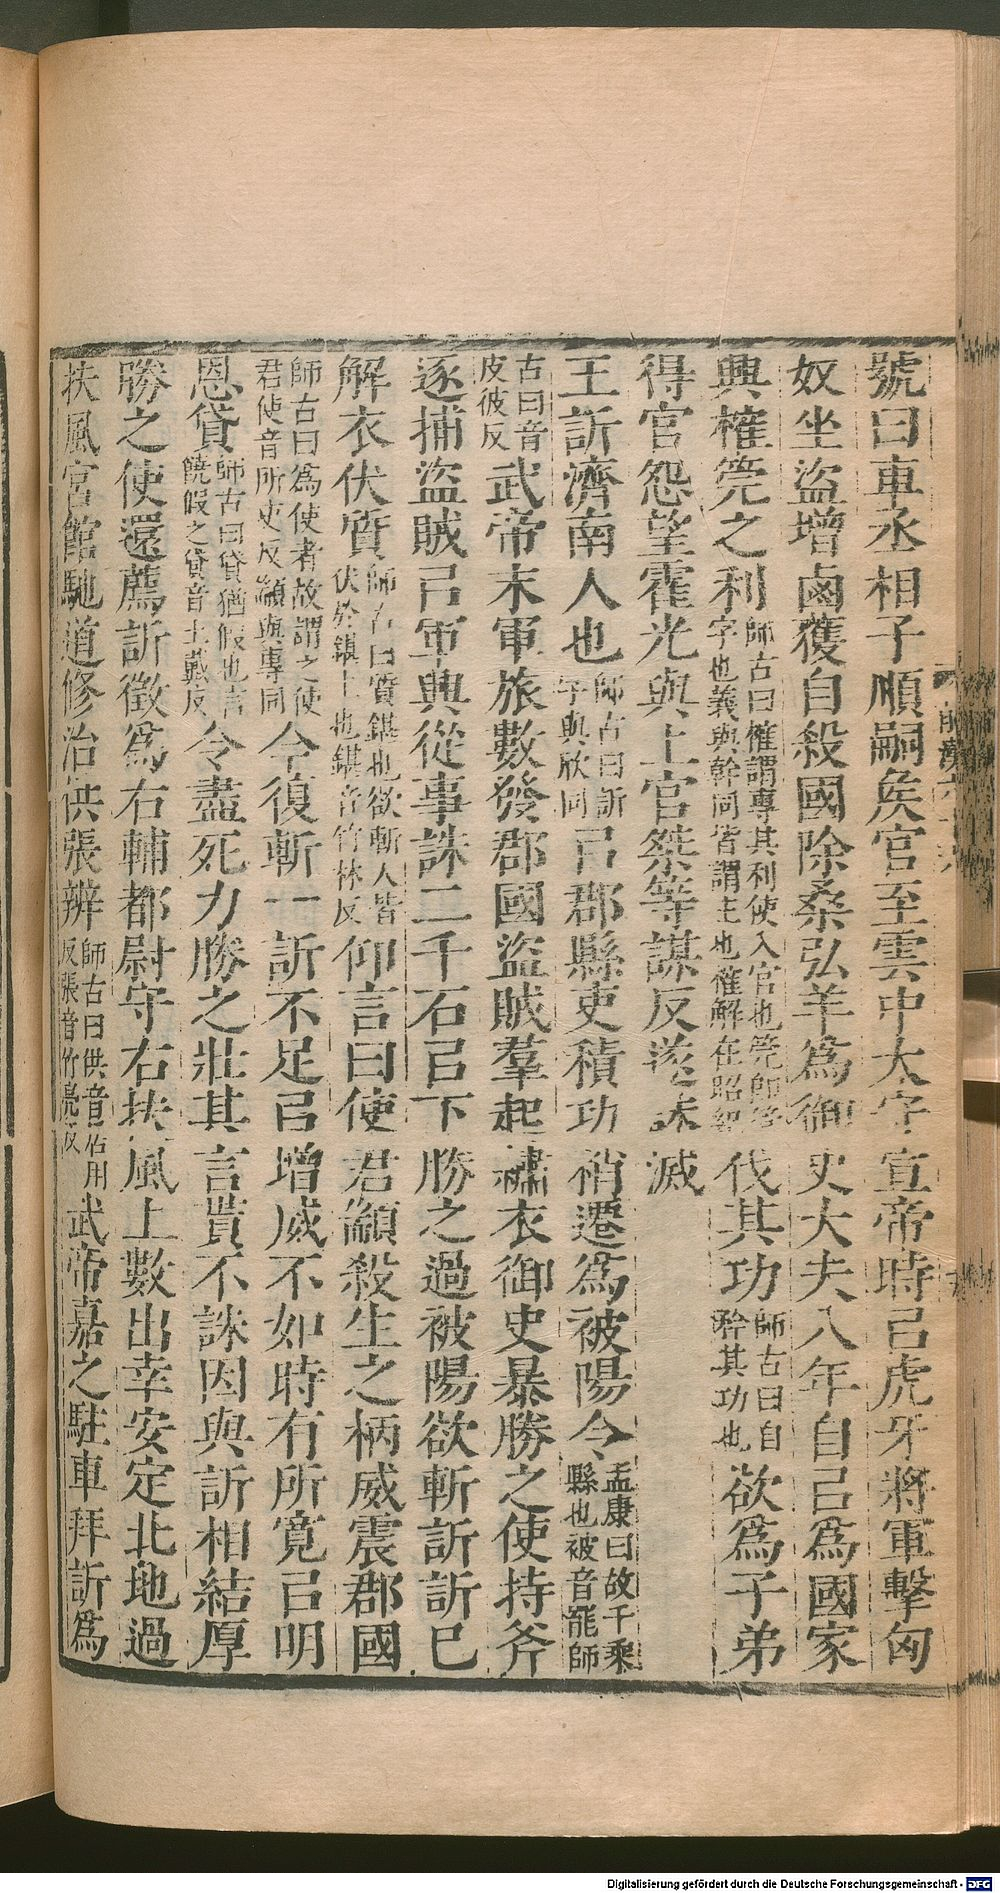 號曰車丞相子順嗣矦官至雲中太守宣帝時㠯虎牙將軍擊匈
奴坐盜增鹵獲自殺國除桑弘羊爲御史大夫八年自㠯爲國家
興榷筦之利師古曰榷謂專其利使入官也筦字也義與幹同皆謂主也榷解在昭紀伐其功師古曰自矜其功也欲爲子弟
得官怨望霍光與上官桀等謀反遂誅滅
王訢濟南人也師古曰訢字與欣同㠯郡縣吏積功稍遷爲被陽令孟康曰故千乘縣也被音罷師
古曰音皮彼反武帝末軍旅數發郡國盜賊羣起繡衣御史暴勝之使持斧
逐捕盜賊㠯軍興從事誅二千石㠯下勝之過被陽欲斬訢訢巳
解衣伏質師古曰質鍖也欲斬人皆伏於鍖上也鍖音竹林反仰言曰使君顓殺生之柄威震郡國
師古曰爲使者故謂之使君使音所吏反顓與專同今復斬一訢不足㠯增威不如時有所寬㠯明
恩貸師古曰貸猶假也言饒假之貸音土戴反令盡死力勝之壯其言貰不誅因與訢相結厚
勝之使還薦訢徵爲右輔都尉守右扶風上數出幸安定北地過
扶風宮館馳道修治供張辨師古曰供音居用反張音竹亮反武帝嘉之駐車拜訢爲
前漢六十六
Digitalisierung gefördert durch die Deutsche Forschungsgemeinschaft - DFG